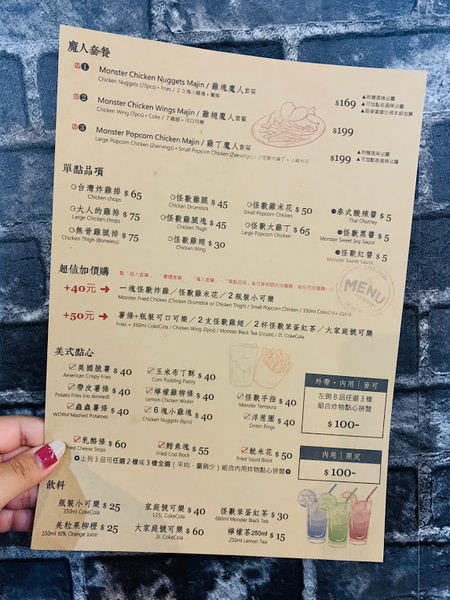 魔人套餐
1 Monster Chicken Nuggets Majin / 雞塊魔人套餐
Chicken Nuggets (20pcs) + Fries /
$169
2 Monster Chicken Wings Majin / 雞翅魔人套餐
Chicken Wing (7pcs) + Coke /
$199
3 Monster Popcorn Chicken Majin / 雞丁魔人套餐
Large Popcorn Chicken (2servings) + Small Popcorn Chicken (2servings) /
$199
單點品項
台灣炸雞排 $65
Chicken chops
大人的雞排 $75
Large Chicken chops
無骨雞腿排 $75
Chicken Thigh (Boneless)
怪獸雞腿 $55
Chicken Drumstick
怪獸雞腿塊 $45
Chicken Thigh
怪獸雞翅 $30
Chicken Wing
怪獸雞米花 $50
Small Popcorn Chicken
怪獸大雞丁 $65
Large Popcorn Chicken
泰式酸辣醬 $5
Thai Chutney
怪獸黑醬 $5
Monster Sweet Soy Sauce
怪獸紅醬 $5
Monster Sweet Sauce
MENU
超值加價購
+40元 → 一塊怪獸炸雞／怪獸雞米花／2瓶裝小可樂
Monster Fried Chicken (Chicken Drumstick or Chicken Thigh) / Small Popcorn Chicken / 350ml CokeCola (2pcs)
+50元 → 薯條+瓶裝可口可樂／2支怪獸雞翅／2杯怪獸笨蛋紅茶／大家庭號可樂
Fries + 350ml CokeCola / Chicken Wing (2pcs) / Monster Black Tea (2cups) / 2L CokeCola
美式點心
美國脆薯 $40
American Crispy Fries
帶皮薯條 $40
Potato Fries (no skinned)
蟲蟲薯條 $40
WORM Mashed Potatoes
玉米布丁酥 $40
Corn Pudding Pastry
檸檬雞柳條 $40
Lemon Chicken Wicker
6塊小雞塊 $40
Chicken Nuggets (6pcs)
怪獸手指 $40
Monster Tempura
洋蔥圈 $40
Onion Rings
外帶・內用｜皆可
左側8品任選
組合炸物點心拼盤
$100-
乳酪條 $60
Fried Cheese Strips
鱈魚塊 $55
Fried Cod Block
魷米花 $50
Fried Squid Block
上列3品可任選2樣或3樣全選（平均・量稍少）組合內用炸物點心拼盤
內用｜限定
$100-
飲料
瓶裝小可樂 $25
350ml CokeCola
美粒果柳橙 $25
350ml 10% Orange Juice
家庭號可樂 $40
1.25L CokeCola
大家庭號可樂 $60
2L CokeCola
怪獸笨蛋紅茶 $30
660ml Monster Black Tea
檸檬茶250ml $15
250ml Lemon Tea